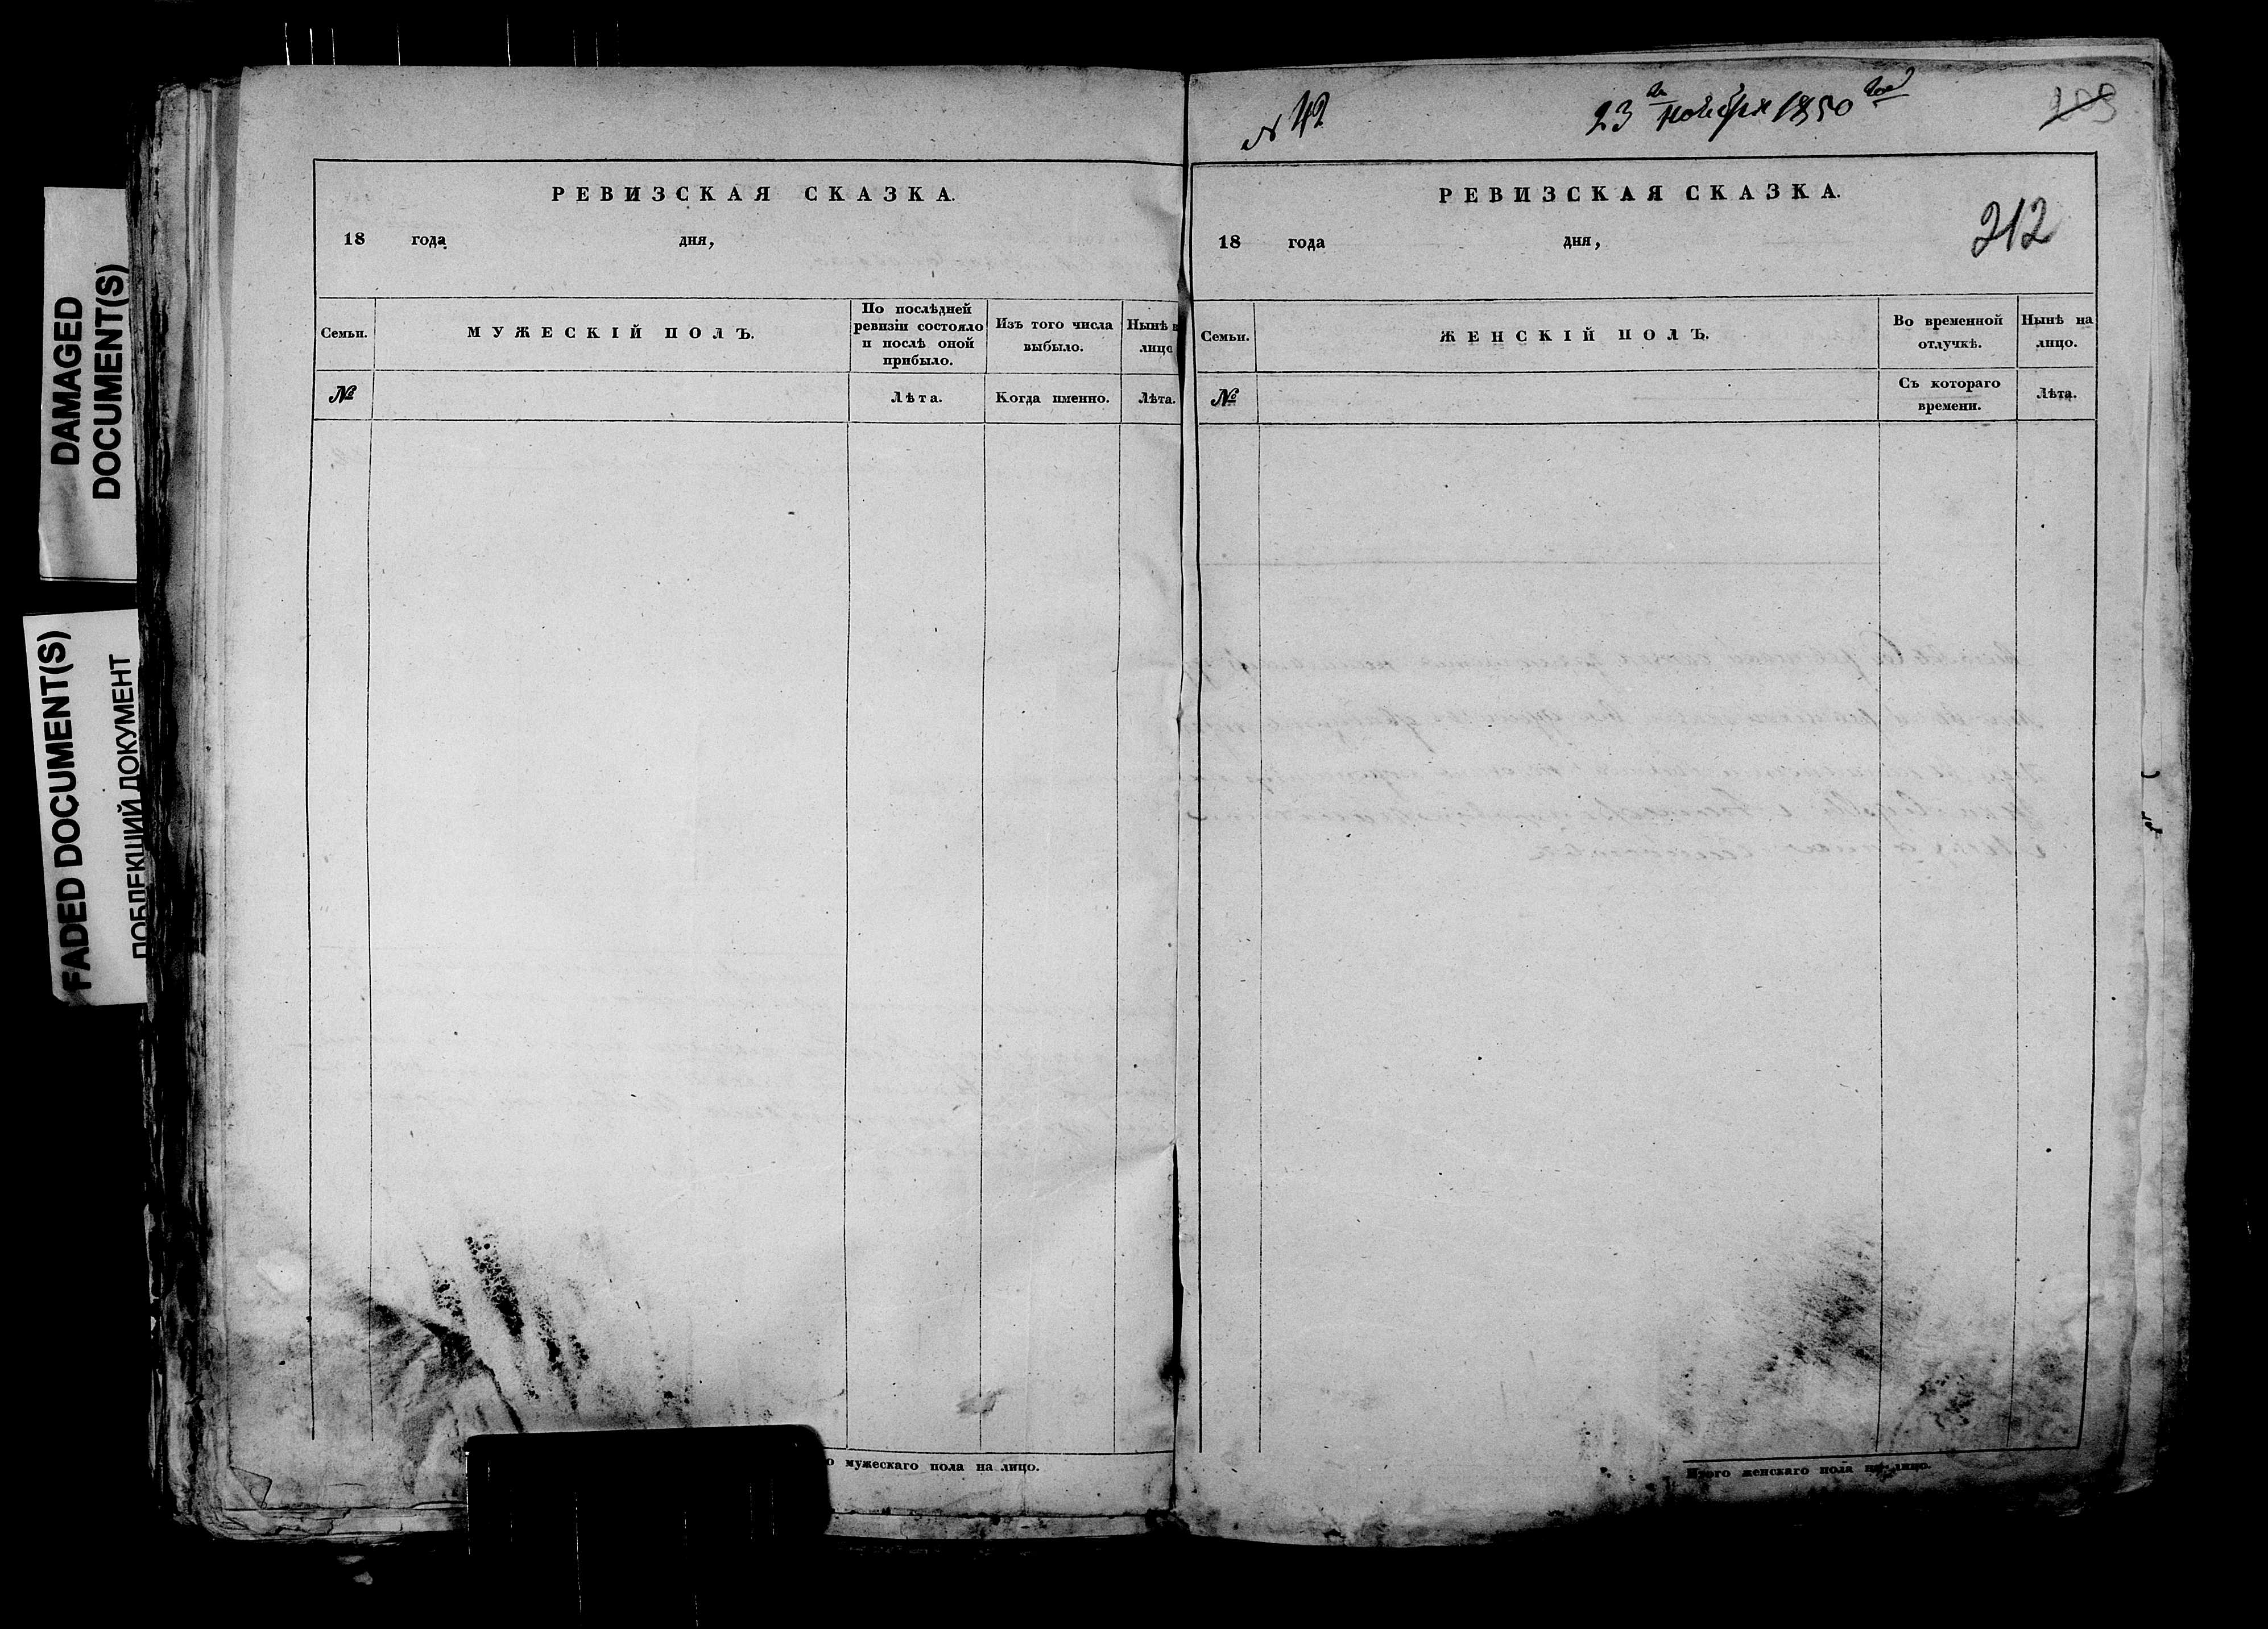 DAMAGED
DOCUMENT(S)
FADED DOCUMENT(S)
ПОБЛЕКШИЙ ДОКУМЕНТ
РЕВИЗСКАЯ СКАЗКА.
18 года дня,
Семьи.
МУЖЕСКІЙ ПОЛЪ.
По послѣдней
ревизіи состояло
и послѣ оной
прибыло.
Изъ того числа
выбыло.
Нынѣ н
лицо
№
Лѣта.
Когда именно.
Лѣта.
о мужескаго пола на лицо.
№ 42
23 ноября 1850
РЕВИЗСКАЯ СКАЗКА.
212
18 года дня,
Семьи.
ЖЕНСКІЙ ПОЛЪ.
Во временной
отлучкѣ.
Нынѣ на
лицо.
№
Съ котораго
времени.
Лѣта.
Итого женскаго пола на лицо.